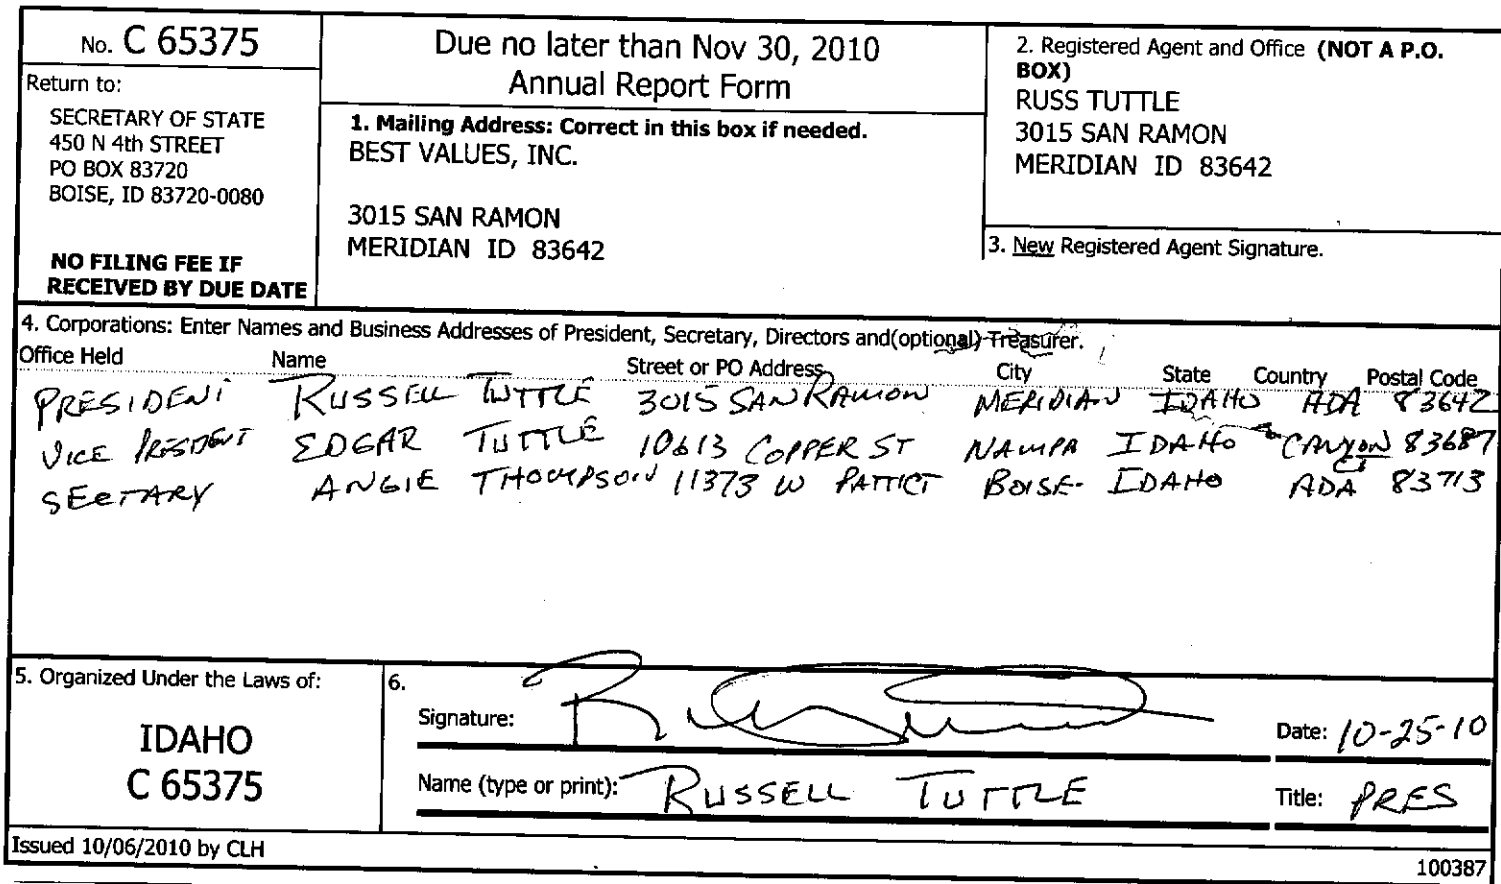 No. C 65375
Return to:
SECRETARY OF STATE
450 N 4th STREET
PO BOX 83720
BOISE, ID 83720-0080
NO FILING FEE IF
RECEIVED BY DUE DATE
Due no later than Nov 30, 2010
Annual Report Form
1. Mailing Address: Correct in this box if needed.
BEST VALUES, INC.
3015 SAN RAMON
MERIDIAN ID 83642
2. Registered Agent and Office (NOT A P.O.
BOX)
RUSS TUTTLE
3015 SAN RAMON
MERIDIAN ID 83642
3. New Registered Agent Signature.
4. Corporations: Enter Names and Business Addresses of President, Secretary, Directors and(optional) Treasurer.
Office Held Name Street or PO Address City State Country Postal Code
PRESIDENT RUSSELL TUTTLE 3015 SAN RAMON MERIDIAN IDAHO ADA 83642
VICE PRESIDENT EDGAR TUTTLE 10613 COPPER ST NAMPA IDAHO CANYON 83687
SECTARY ANGIE THOMPSON 11373 W PATTICT BOISE IDAHO ADA 83713
5. Organized Under the Laws of:
IDAHO
C 65375
6.
Signature:
Date: 10-25-10
Name (type or print): RUSSELL TUTTLE
Title: PRES
Issued 10/06/2010 by CLH
100387